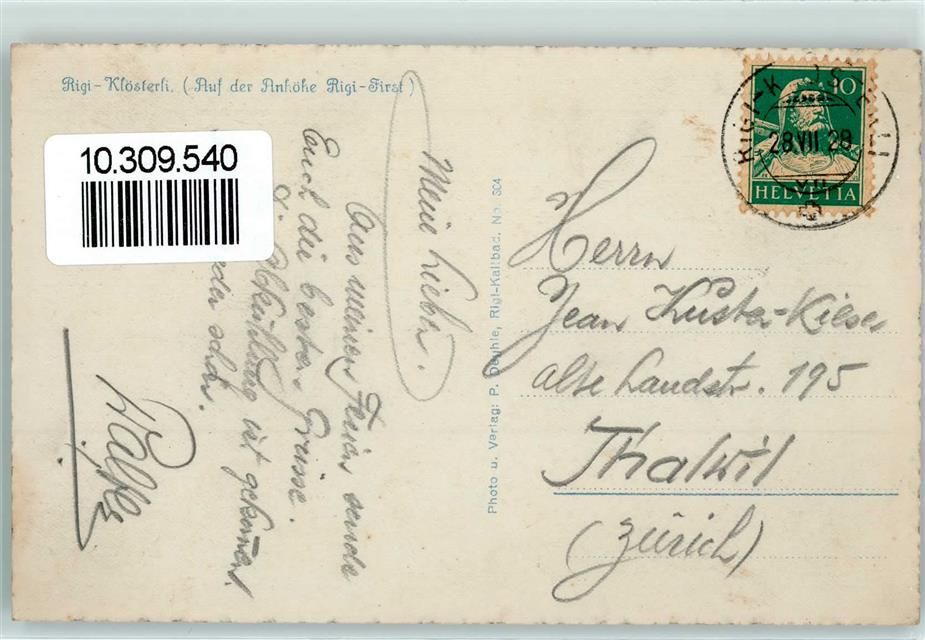 Rigi-Klösterli. (Auf der Anhöhe Rigi-First)
10.309.540
Meine Lieben.
Aus meinen Ferien sende
Euch die besten Grüsse.
Abkühlung ist gekommen.
schön.
Photo u. Verlag: P. Deuhle, Rigi-Kaltbad. No. 304
10
HELVETIA
RIGI-KLÖSTERLI
28.VII.28
Herrn
Jean Kuster-Kieser
alte Landstr. 195
Thalwil
(Zürich)